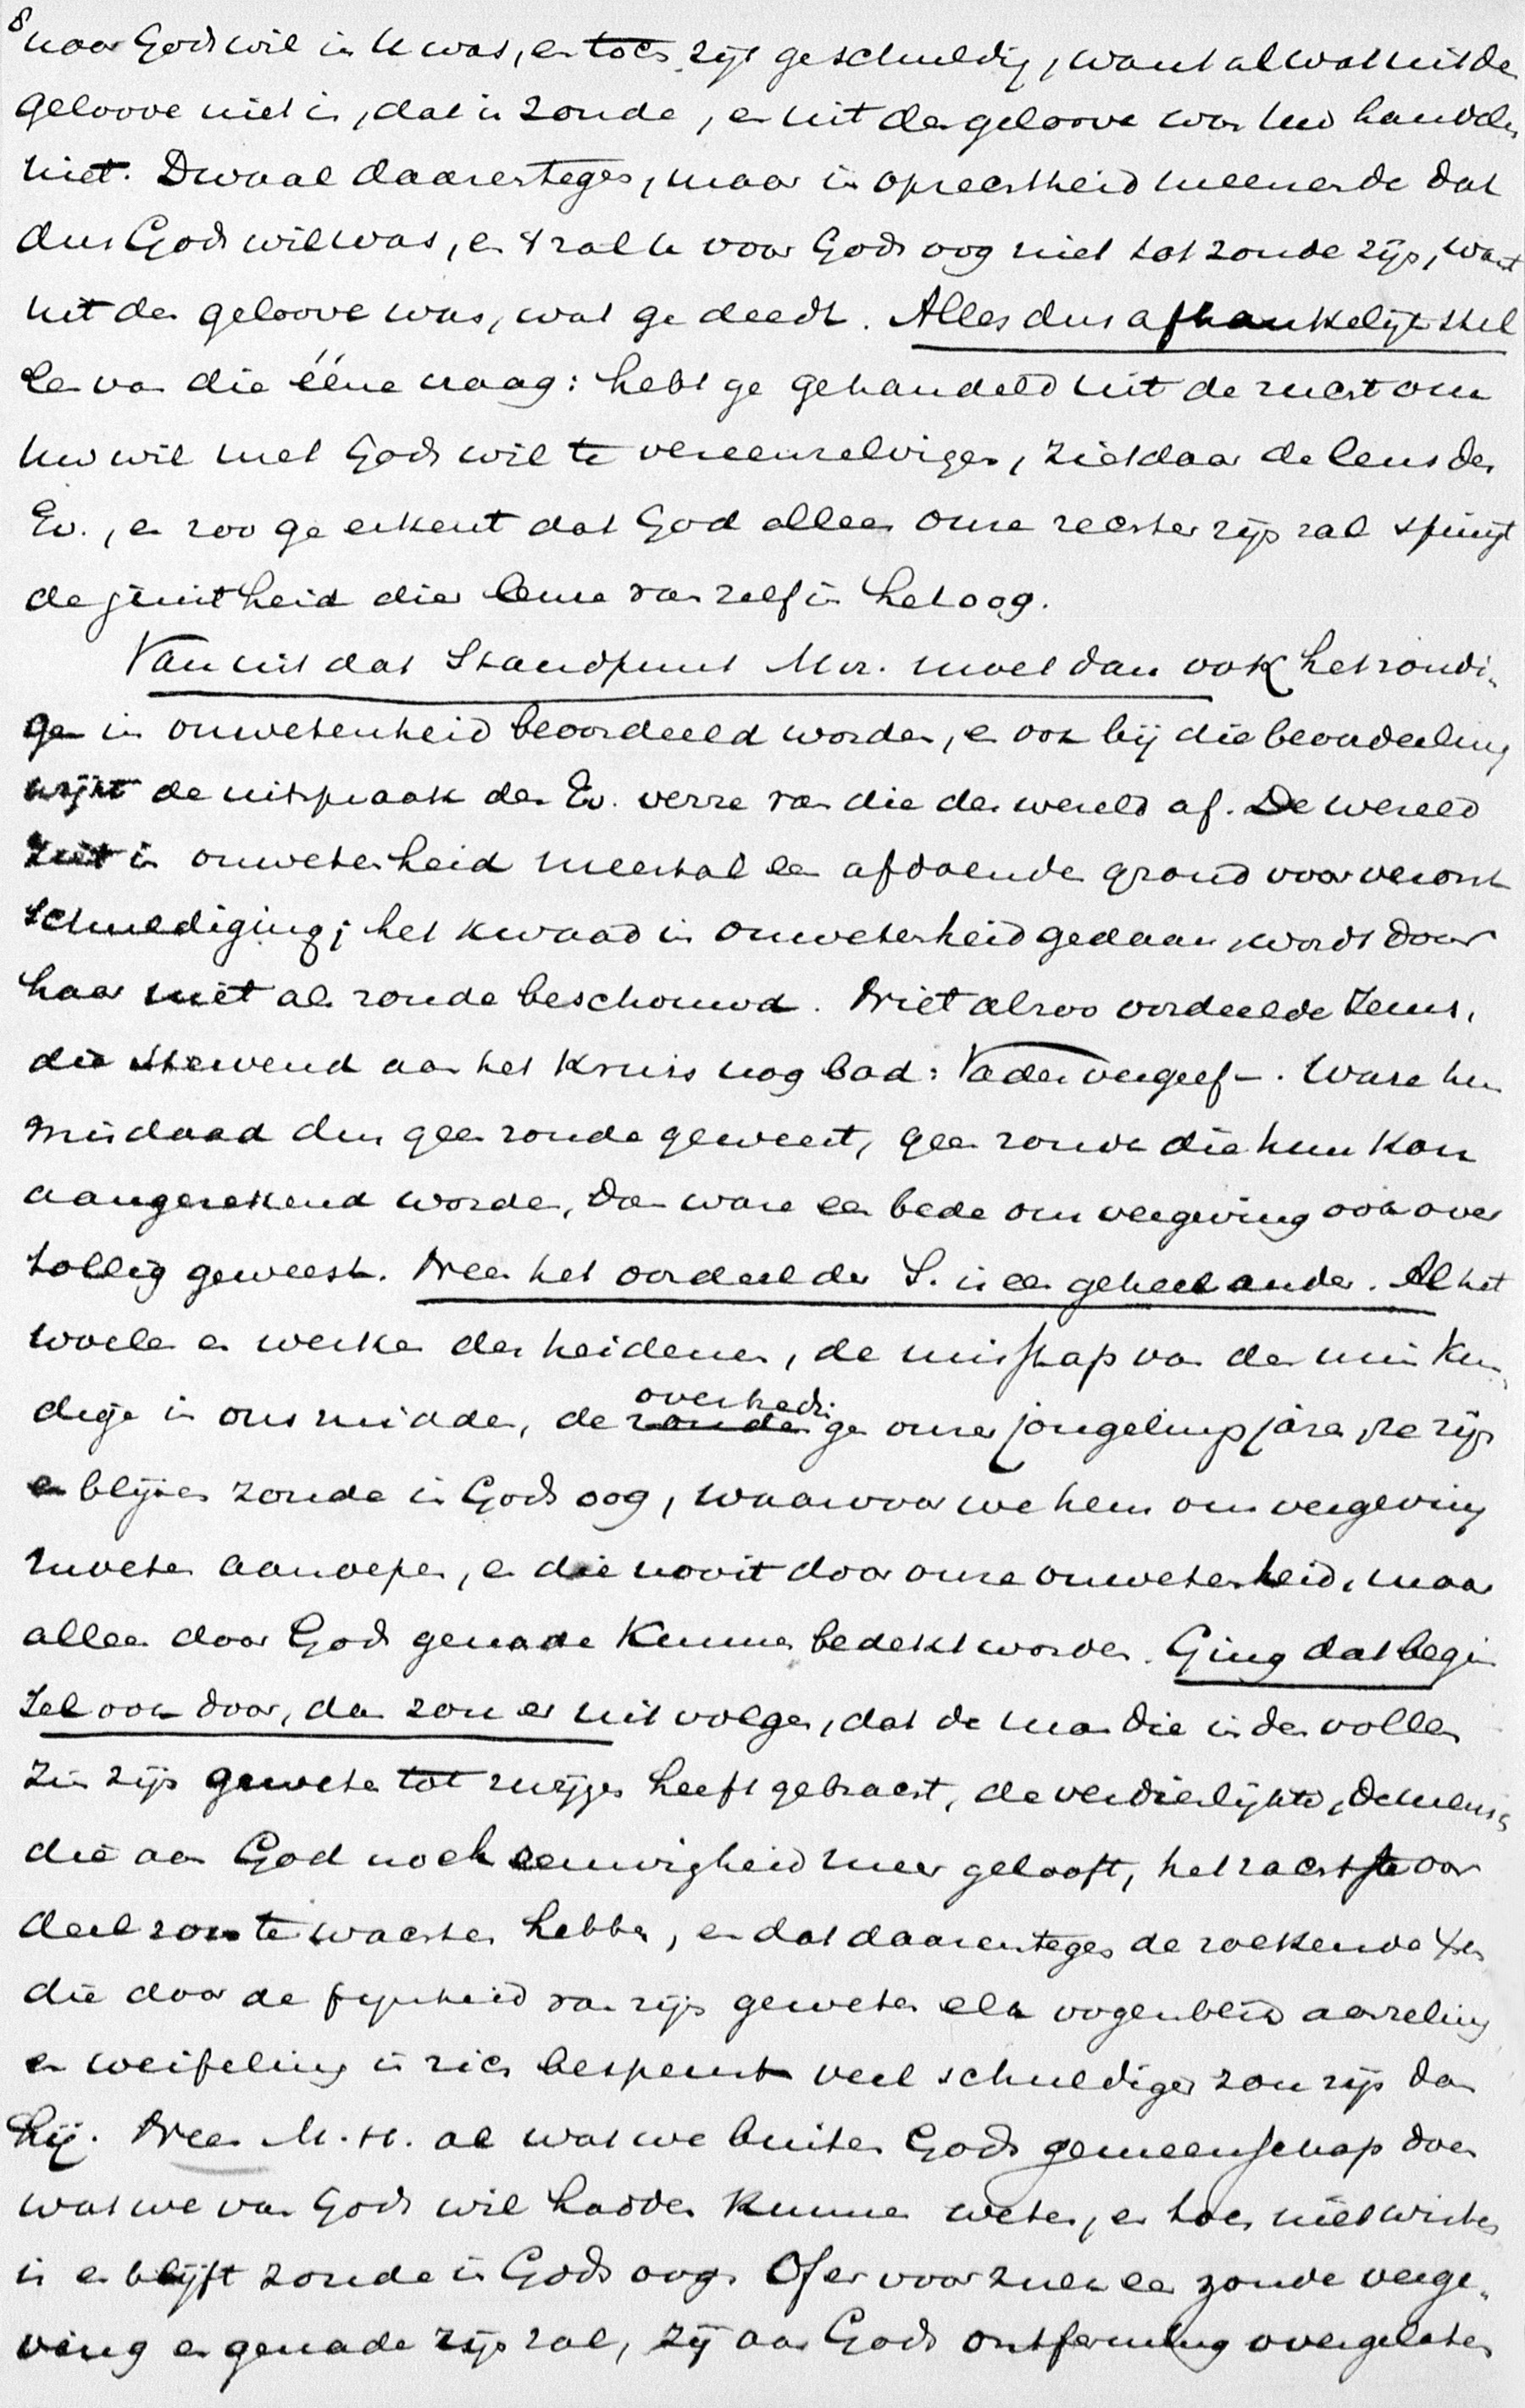 8
naar Gods wil in U was, en toch zijt ge schuldig, want al wat uit de
geloove niet is, dat is zonde, en uit den geloove was uw handelen
niet. Dwaal daarentegen, maar in oprechtheid meenende dat
dus Gods wil was, en 't zal U voor Gods oog niet tot zonde zijn, want
uit den geloove was, wat ge deedt. Alles dus afhankelijk stel
len van die ééne vraag: hebt ge gehandeld uit de zucht om
uw wil met Gods wil te vereenzelvigen, ziet daar de leus des
Ev., en zoo ge erkent dat God alleen onze rechter zijn zal springt
de juistheid dier leuze van zelf in het oog.
Van uit dat Standpunt M.v. moet dan ook het zondi-
gen in onwetenheid beoordeeld worden, en ook bij die beoordeeling
wijkt de uitspraak des Ev. verre van die der wereld af. De wereld
ziet in onwetenheid meestal een afdoende grond voor veront
schuldiging; het kwaad in onwetenheid gedaan, wordt door
haar niet als zonde beschouwd. Niet alzoo oordeelde Jezus,
die stervend aan het kruis nog bad: Vader vergeef –. Ware hun
misdaad dus geen zonde geweest, geen zonde die hun kon
aangerekend worden, dan ware een bede om vergeving ook over
tollig geweest. Neen het oordeel der S. is een geheel ander. Al het
woelen en werken der heidenen, de misstap van den min kun
dige in ons midden, de zonden overtredingen onzer jongelingsjaren, ze zijn
en blijven zonde in Gods oog, waarvoor we hem om vergeving
moeten aanroepen, en die nooit door onze onwetenheid, maar
alleen door Gods genade kunnen bedekt worden. Ging dat begin
sel ook door, dan zou er uit volgen, dat de man die in den vollen
zin zijn geweten tot zwijgen heeft gebracht, de verdierlijkte, de mensch
die aan God noch eeuwigheid meer gelooft, het zachtste oor
deel zou te wachten hebben, en dat daarentegen de zoekende Xen
die door de fijnheid van zijn geweten elk oogenblik aarzeling
en weifeling in zich bespeurt veel schuldiger zou zijn dan
hij. Neen M.H. al wat we buiten Gods gemeenschap doen
wat we van Gods wil hadden kunnen weten, en toch niet wisten
is en blijft zonde in Gods oog. Of er voor zulk een zonde verge-
ving en genade zijn zal, zij aan Gods ontferming overgelaten